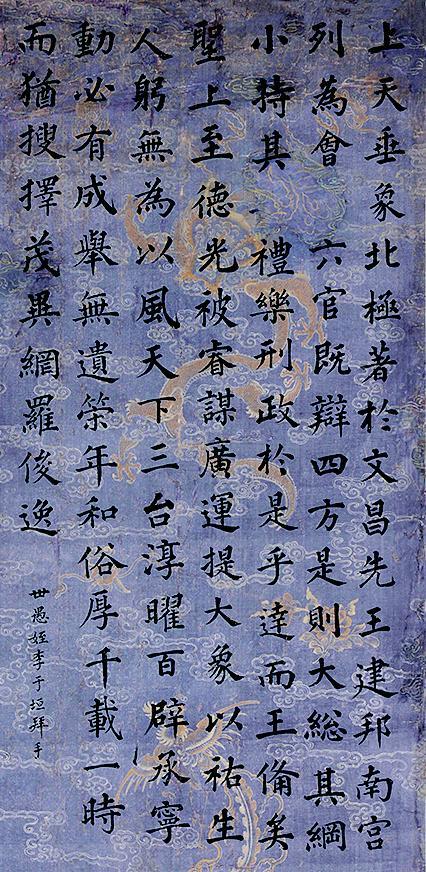 上天垂象北極著於文昌先王建邦南宮
列為會六官既辯四方是則大總其綱
小持其禮樂刑政於是乎達而王俻矣
聖上至德光被睿謀廣運提大象以祐生
人躬無為以風天下三台淳曜百辟承寧
動必有成舉無遺筞年和俗厚千載一時
而猶搜擇茂異網羅俊逸
世愚姪李于垣拜手